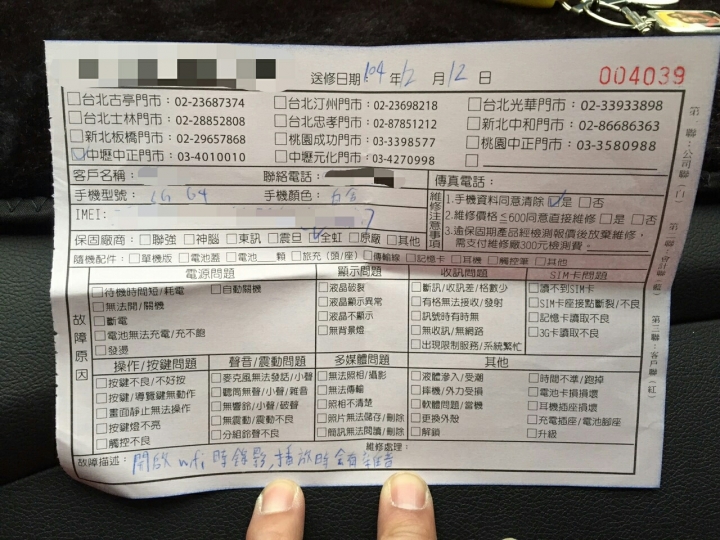 送修日期:104年12月12日 004039
□台北古亭門市:02-23687374 □台北汀州門市:02-23698218 □台北光華門市:02-33933898
□台北士林門市:02-28852808 □台北忠孝門市:02-87851212 □新北中和門市:02-86686363
□新北板橋門市:02-29657868 □桃園成功門市:03-3398577 □桃園中正門市:03-3580988
☑中壢中正門市:03-4010010 □中壢元化門市:03-4270998 □
客戶名稱: 聯絡電話: 傳真電話:
手機型號: G4 手機顏色:
IMEI: 7
維修注意事項
1.手機資料同意清除☑是□否
2.維修價格≦600同意直接維修□是□否
3.過保固期產品經檢測報價後放棄維修,
需支付維修廠300元檢測費。
保固廠商:□聯強□神腦□東訊□震旦☑全虹□原廠□其他
隨機配件:□單機版□電池蓋□電池 顆□旅充(頭/座)□傳輸線□記憶卡□耳機□觸控筆□其他
故障原因
電源問題 顯示問題 收訊問題 SIM卡問題
□待機時間短/耗電 □自動關機 □液晶破裂 □斷訊/收訊差/格數少 □讀不到SIM卡
□無法開/關機 □液晶顯示異常 □有格無法接收/發射 □SIM卡座接點斷裂/不良
□斷電 □液晶不顯示 □訊號時有時無 □記憶卡讀取不良
□電池無法充電/充不飽 □無背景燈 □無收訊/無網路 □3G卡讀取不良
□發燙 □出現限制服務/系統繁忙
操作/按鍵問題 聲音/震動問題 多媒體問題 其他
□按鍵不良/不好按 □麥克風無法發話/小聲 □無法照相/攝影 □液體滲入/受潮 □時間不準/跑掉
□按鍵/導覽鍵無動作 □聽筒無聲/小聲/雜音 □無法傳輸 □摔機/外力受損 □電池卡損損壞
□畫面靜止無法操作 □無響鈴/小聲/破聲 □照相不清楚 □軟體問題/當機 □耳機插座損壞
□按鍵燈不亮 □無震動/震動不良 □照片無法儲存/刪除 □更換外殼 □充電插座/電池腳座
□觸控不良 □分組鈴聲不良 □簡訊無法閱讀/刪除 □解鎖 □升級
故障描述:開啟wifi時錄影,播放時會有雜音 維修處理: